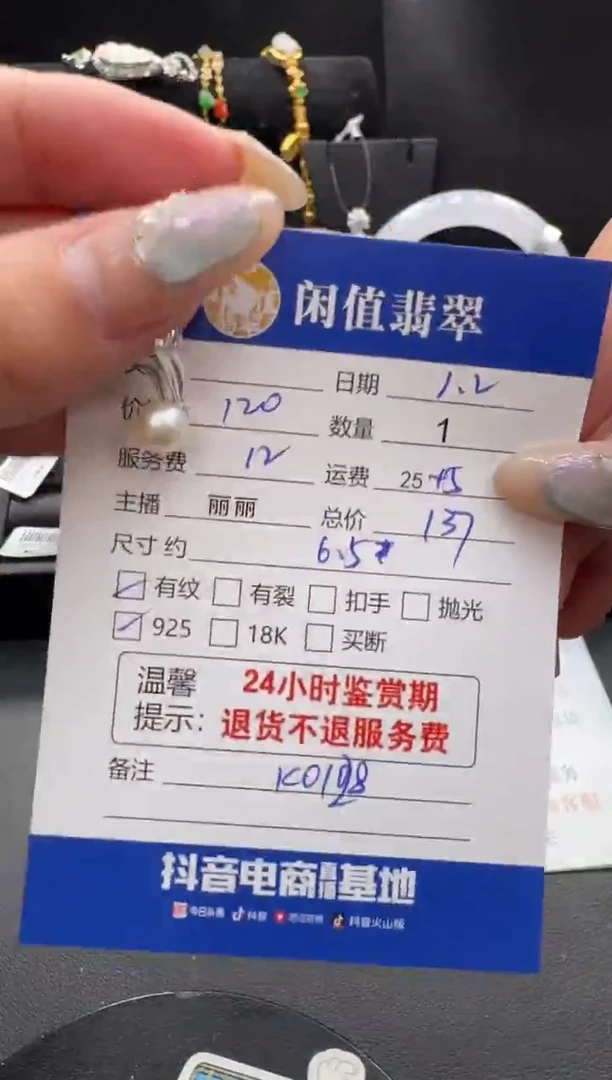 闲值翡翠
日期 1.2
价 120 数量 1
服务费 12 运费 25 +5
主播 丽丽 总价 137
尺寸 约 6.5
有纹 有裂 扣手 抛光
925 18K 买断
温馨提示: 24小时鉴赏期
退货不退服务费
备注 K0198
抖音电商直播基地
今日头条 抖音 抖音火山版